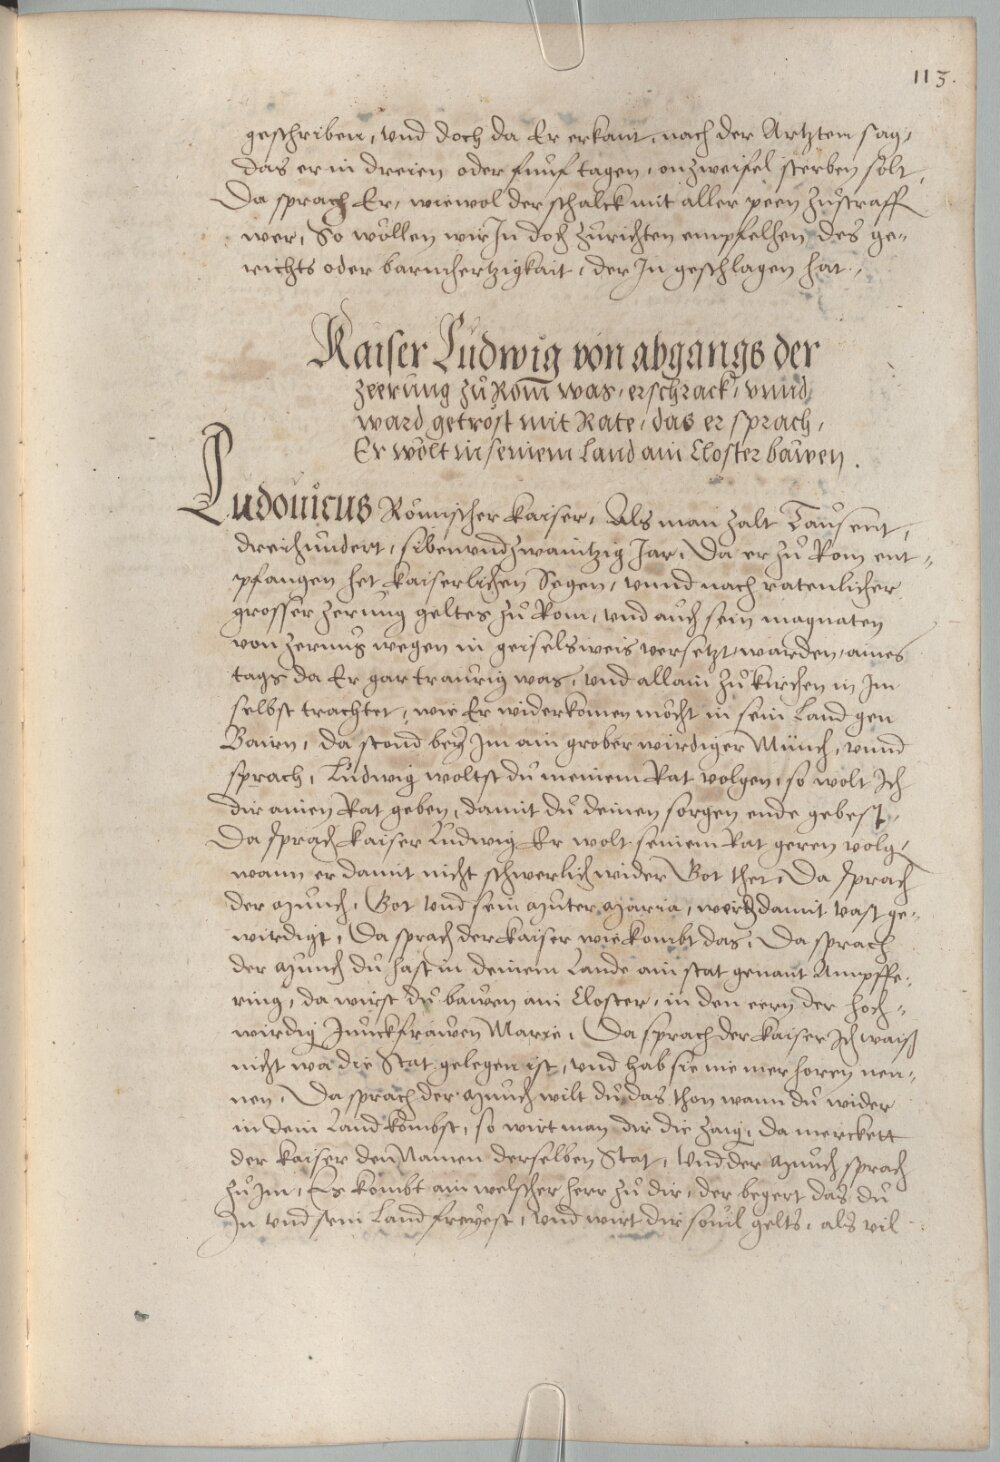 113.
geschriben, und doch da Er erkant, nach der Artzten sag,
das er in dreien oder funf tagen, on zweifel sterben solt,
Da sprach Er, wiewol der schalck mit aller peen zustraff
wer, So wöllen wir In doch zurichten empfelhen des ge-
richts oder barmhertzigkait, der In geschlagen hat,
Kaiser Ludwig von abgangs der
zeerung zu Rom was, erschrack, unnd
ward getröst mit Rate, das er sprach,
Er wölt in seinem Land ain Closter bawen.
Ludouicus Römischer kaiser, Als man zalt Tausent,
dreihundert, sibenundzwaintzig Jar, Da er zu Rom ent-
pfangen het kaiserlichen Segen, unnd nach ratenlicher
grosser zerung geltes zu Rom, und auch sein magnaten
von zerung wegen in geiselsweis versetzt warden, aines
tags da Er gar traurig was, und allain zu kirchen in Im
selbst trachtet, wie Er widerkomen möcht in sein Land gen
Bairn, da stond bey Im ain grober wirdiger Münch, unnd
sprach, Ludwig woltst du meinem Rat volgen, so wolt Ich
dir ainen Rat geben, damit du deinen sorgen ende gebest,
Da sprach kaiser Ludwig Er wolt seinem Rat geren volg,
wann er damit nicht schwerlich wider Got thet, Da sprach
der Munch, Got und sein Muter Maria, werd damit vast ge-
wirdigt, Da sprach der kaiser wie kombt das, Da sprach
der Munch du hast in deinem Lande ain stat genant Ampffe-
ring, da wirst du bawen ain Closter, in den eern der hoch-
wirdig Junckfrawen Marie, Da sprach der kaiser Ich waiß
nicht wa die Stat gelegen ist, und hab sie nie mer horen nen-
nen, Da sprach der Munch wilt du das thon wann du wider
in dein Land kombst, so wirt man dir die zaig, da merckett
der kaiser den Namen derselben Stat, Und der Munch sprach
zu Im, Es kombt ain welscher herr zu dir, der begert das du
In und sein Land freyest, und wirt dir souil gelts, als vil